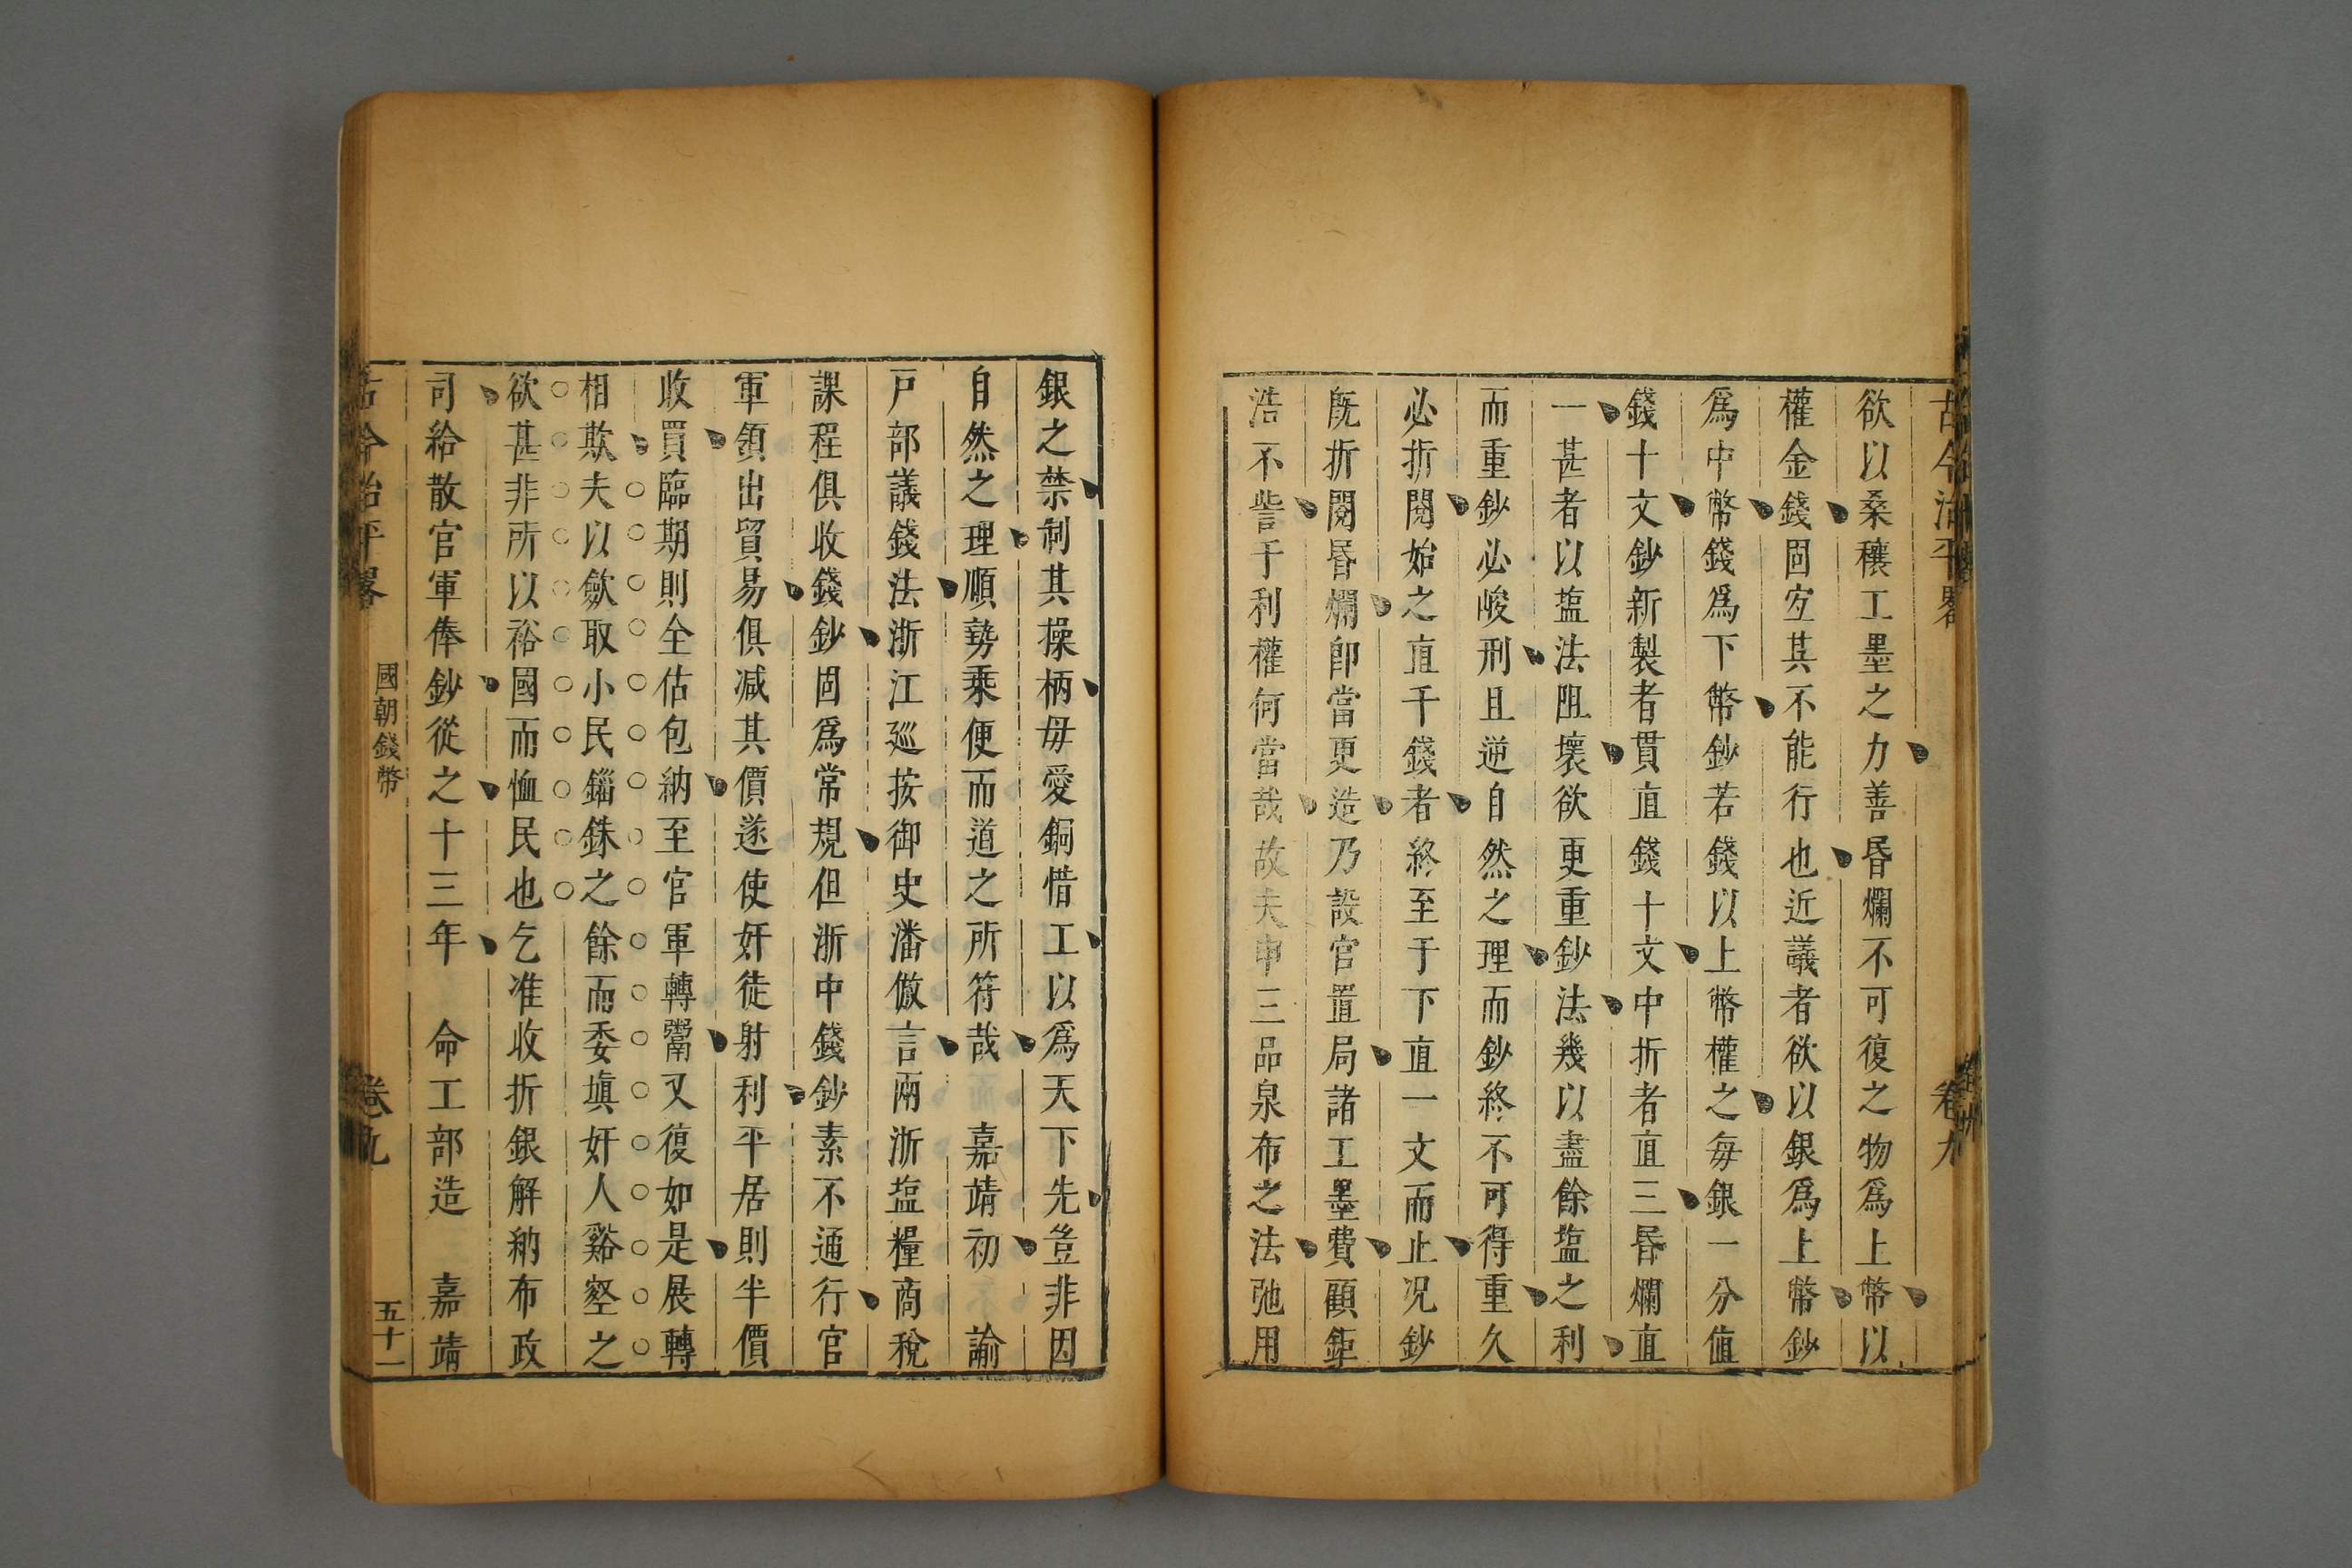 古今治平畧
卷九
欲以桑穰工墨之力善昬爛不可復之物爲上幣以
權金錢固宐其不能行也近議者欲以銀爲上幣鈔
爲中幣錢爲下幣鈔若錢以上幣權之每銀一分值
錢十文鈔新製者貫直錢十文中折者直三昬爛直
一甚者以塩法阻壞欲更重鈔法幾以盡餘塩之利
而重鈔必峻刑且逆自然之理而鈔終不可得重久
必折閱始之直千錢者終至于下直一文而止况鈔
旣折閱昬爛卽當更造乃設官置局諸工墨費顧鉅
浩不訾于利權何當哉故夫申三品泉布之法弛用
銀之禁制其操柄毋愛銅惜工以爲天下先豈非因
自然之理順勢乘便而道之所符哉 嘉靖初 諭
戸部議錢法浙江廵按御史潘倣言兩浙塩糧商稅
課程俱收錢鈔固爲常規但浙中錢鈔素不通行官
軍領出貿易俱减其價遂使奸徒射利平居則半價
收買臨期則全估包納至官軍轉鬻又復如是展轉
相欺夫以歛取小民錙銖之餘而委塡奸人谿壑之
欲甚非所以裕國而恤民也乞准收折銀解納布政
司給散官軍俸鈔從之十三年 命工部造 嘉靖
古今治平畧
國朝錢幣
卷九
五十一